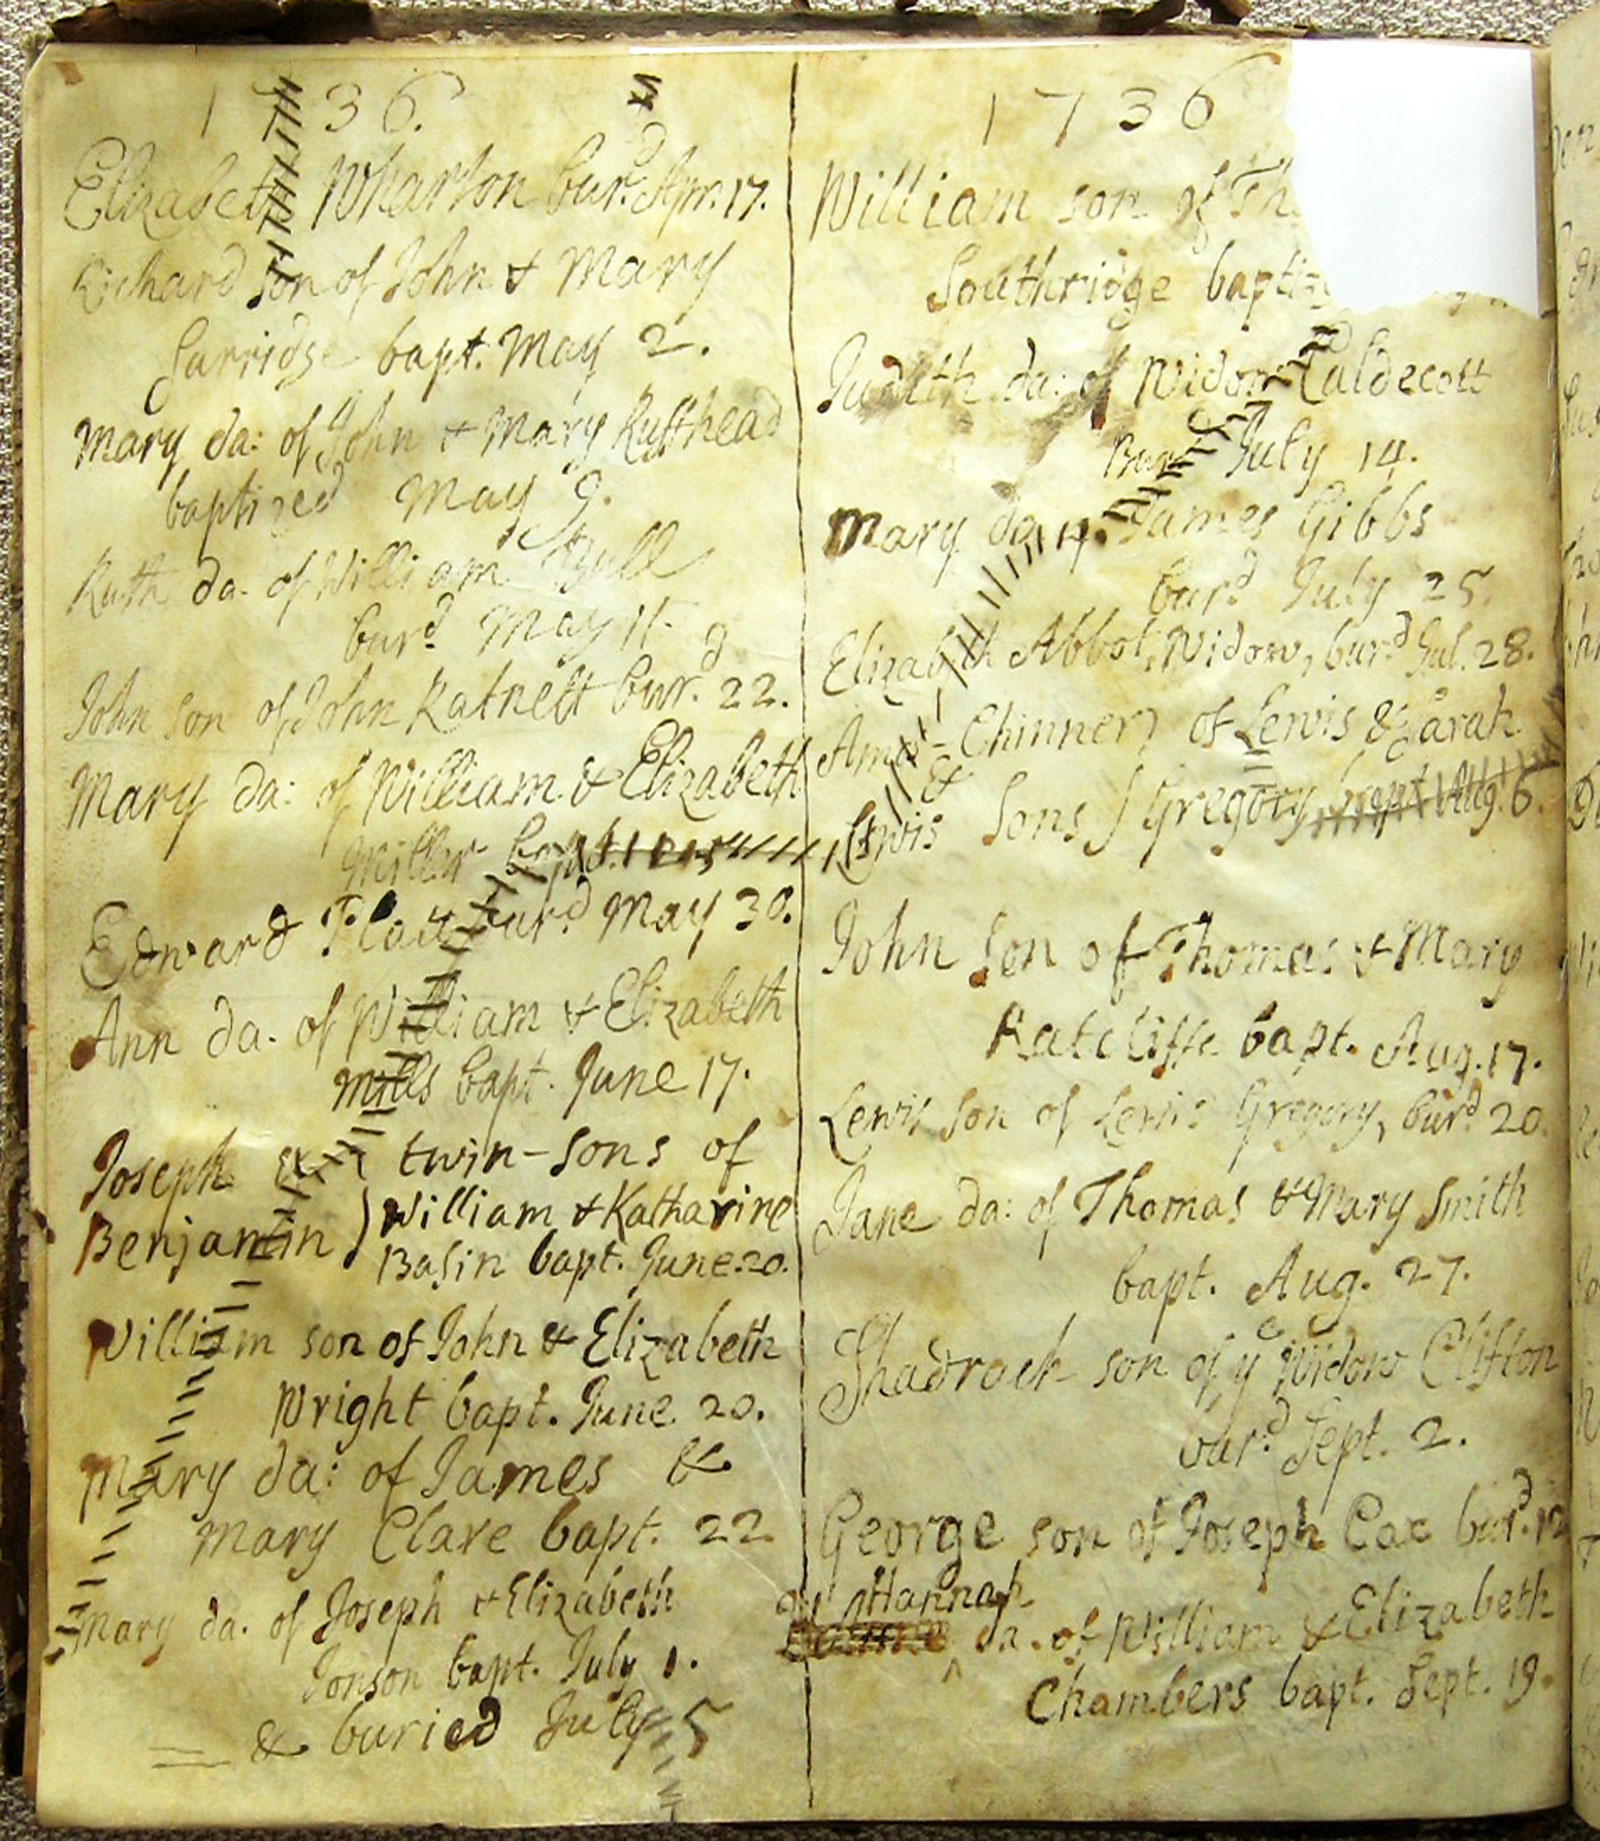 1736.
Elizabeth Wharton bur.d Apr. 17.
Richard son of John & Mary
Gurridge bapt. May 2.
Mary da: of John & Mary Rutthead
baptized May 9.
Ruth da. of William Bull
bur.d May 11.
John son of John Ratnett bur.d 22.
Mary da: of William & Elizabeth
Miller bapt.
Edward bur.d May 30.
Ann da. of William & Elizabeth
Mills bapt. June 17.
Joseph & twin-sons of
Benjamin ) William & Katharine
Basin bapt. June. 20.
William son of John & Elizabeth
Wright bapt. June 20.
Mary da: of James &
Mary Clare bapt. 22
Mary da. of Joseph & Elizabeth
Jonson bapt. July 1.
& buried July 5
1736
William son of Th
Southridge baptiz
Judith da: of Widow Caldecott
Bur.d July 14.
Mary da. James Gibbs
bur.d July 25.
Elizabeth Abbot, Widow, bur.d Jul. 28.
Chinnery of Lewis & Sarah
& Lewis Sons Gregory bapt. Aug. 6.
John Son of Thomas & Mary
Ratcliffe bapt. Aug. 17.
Lewis son of Lewis Gregory, bur.d 20.
Jane da: of Thomas & Mary Smith
bapt. Aug. 27.
Shadrock son of ye Widow Clifton
bur.d Sept. 2.
George son of Joseph Cox bur.d 12
Hannah
da. of William & Elizabeth
Chambers bapt. Sept. 19.